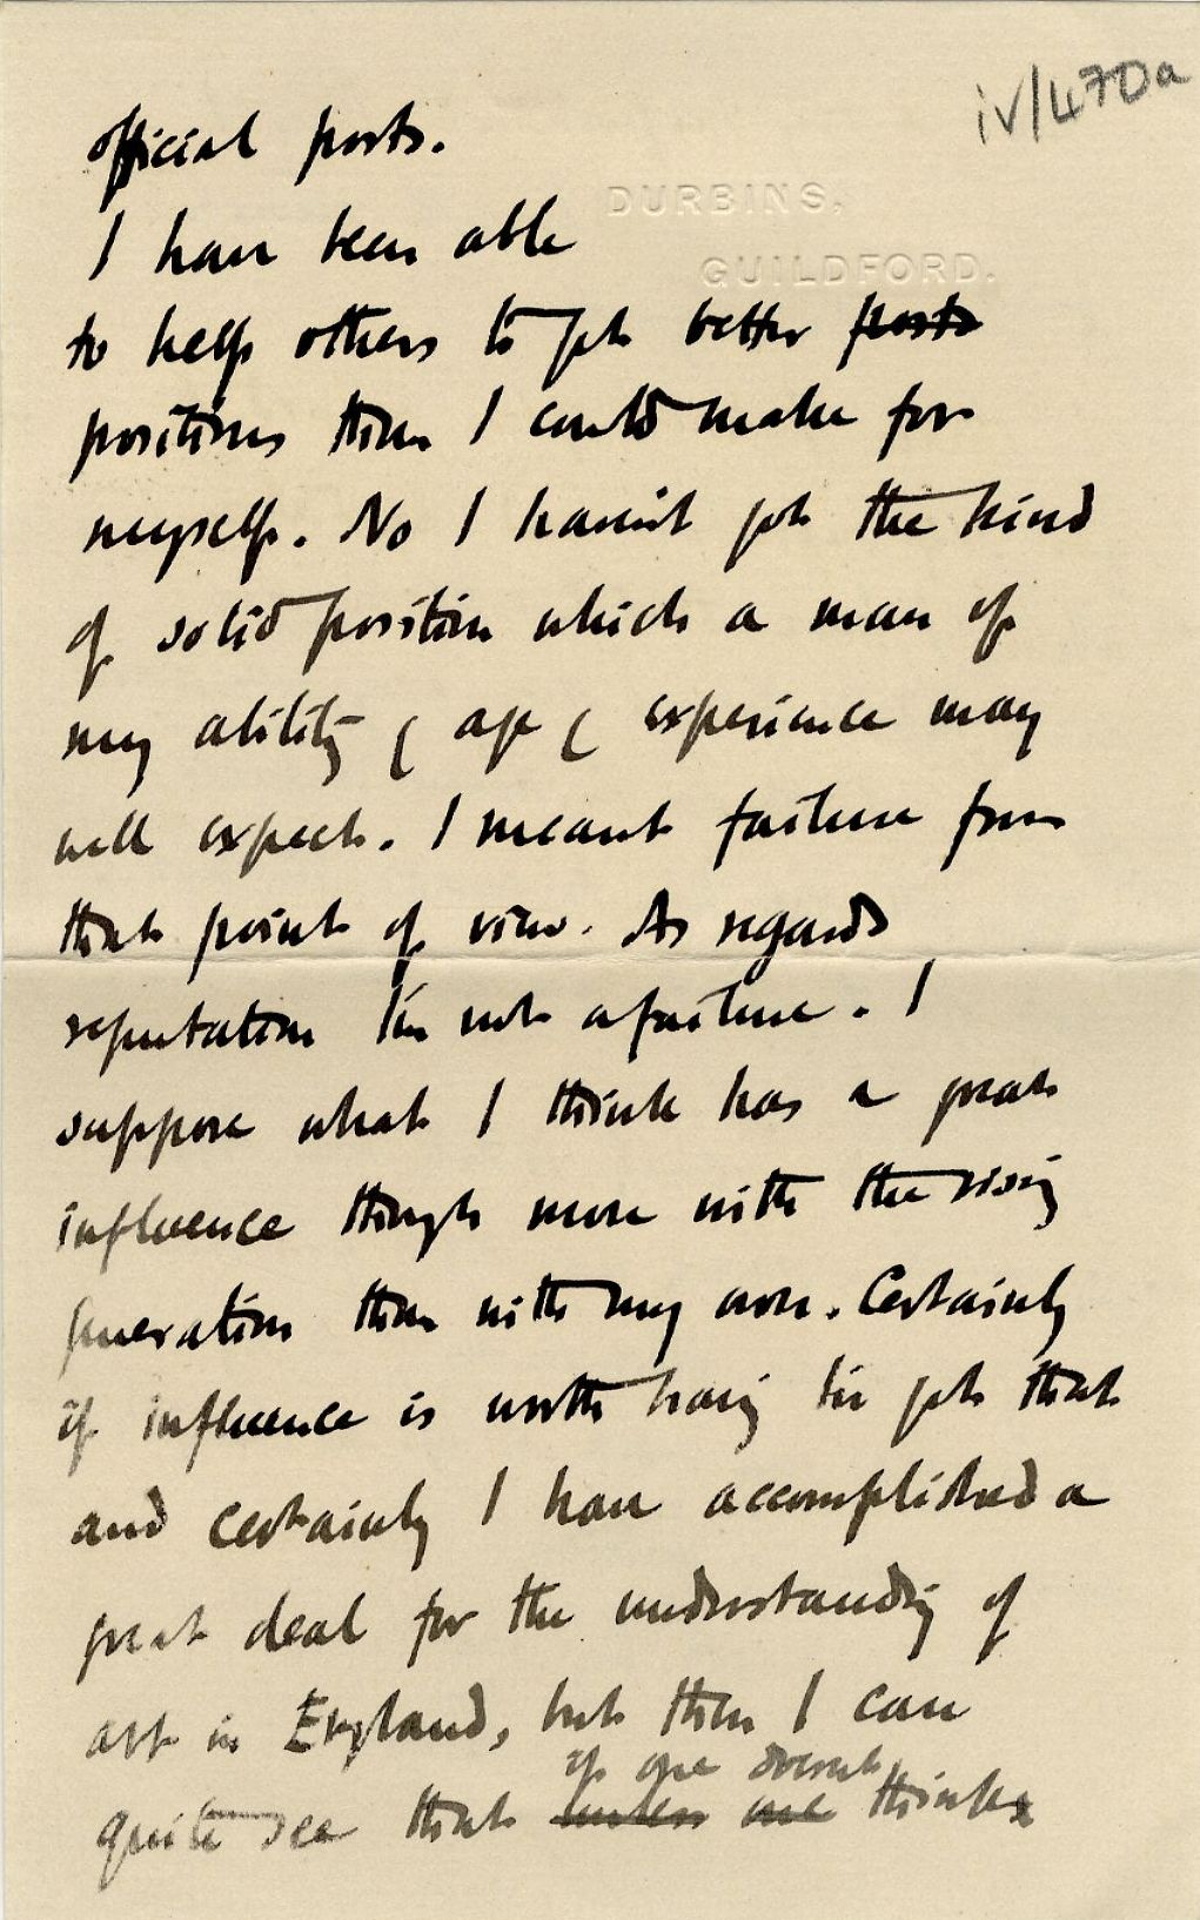 iv/470a
official posts.
DURBINS,
I have been able
GUILDFORD.
to help others to get better posts
positions than I could make for
myself. No I haven't got the kind
of solid position which a man of
my ability & age & experience may
well expect. I meant failure from
that point of view. As regards
reputation I'm not a failure. I
suppose what I think has a great
influence though more with the rising
generation than with my own. Certainly
if influence is worth having I've got that
and certainly I have accomplished a
great deal for the understanding of
art in England, but then I can
if one doesn't
quite see that unless one thinks